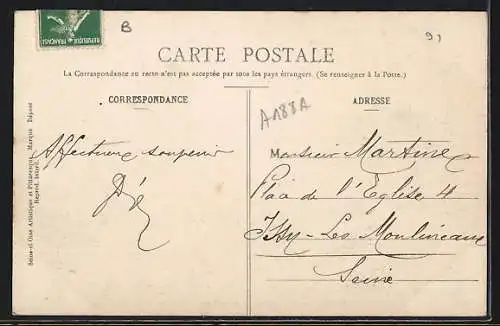 RÉPUBLIQUE FRANÇAISE
B
91
CARTE POSTALE
La Correspondance au recto n'est pas acceptée par tous les pays étrangers. (Se renseigner à la Poste.)
CORRESPONDANCE
ADRESSE
A188A
Affectueux souvenir
Monsieur Martine
Place de l'Eglise 4
Issy-Les Moulineaux
Seine
Seine-et-Oise Artistique et Pittoresque, Marque Déposé